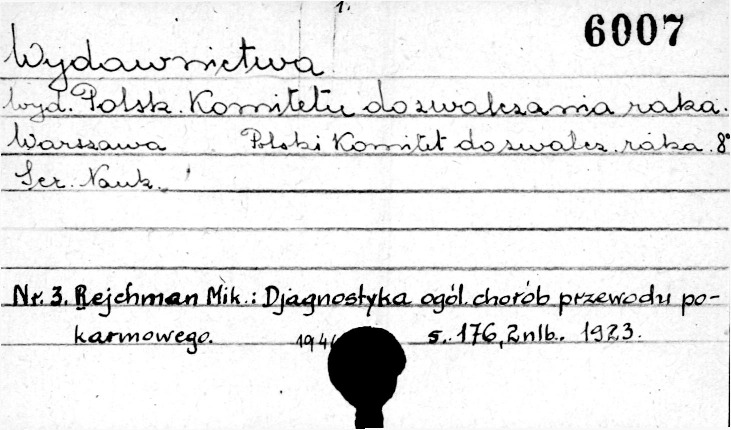 1.
6007
Wydawnictwa
wyd. Polsk. Komitetu do zwalczania raka.
Warszawa Polski Komitet do zwalcz. raka. 8°
Ser. Nauk.
Nr. 3. Rejchman Mik.: Djagnostyka ogól. chorób przewodu po-
karmowego. s. 176, 2 nlb. 1923.